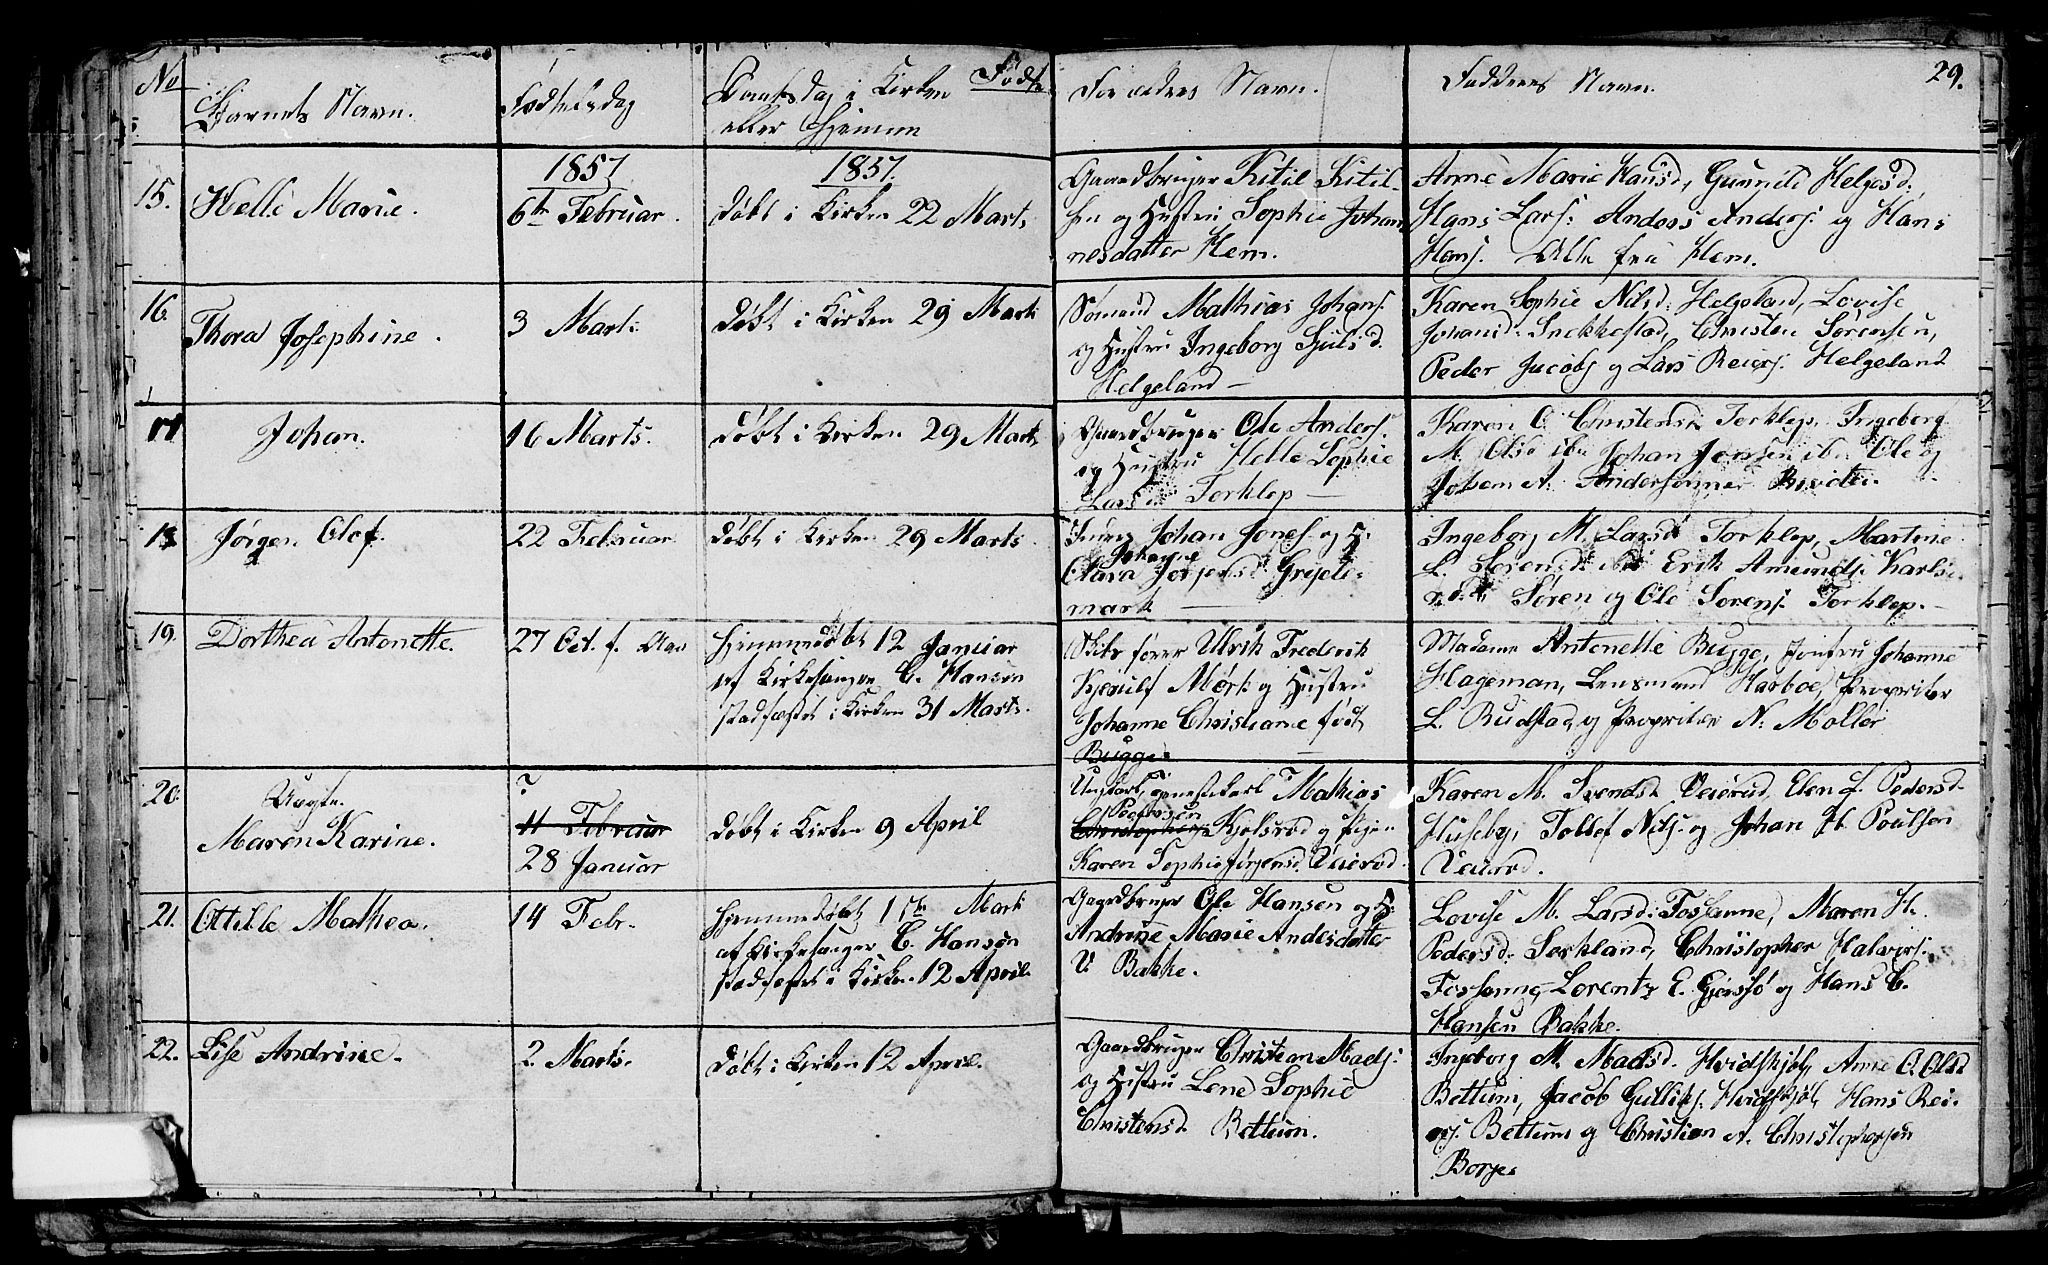 No
Barnets Navn.
Fødselsdag
Daabsdag i Kirken
eller Hjemme
Fødte
Forældres Navn.
Faddernes Navn.
29.
15.
Helle Marie.
1857
6te Februar.
1857.
døbt i Kirken 22 Marts
Gaardbruger Kitil Kitil-
sen og Hustru Sophie Johan
nesdatter Hem.
Anne Marie Hansd, Gunnild Helgesd:
Hans Lars: Anders Anders: og Hans
Hans: Alle fra Hem.
16.
Thora Josephine.
3 Marts
døbt i Kirken 29 Marts
Sømand Mathias Johans:
og Hustru Ingeborg Hjulsd.
Helgeland —
Karen Sophie Nilsd: Helgeland, Lovise
Johansd: Snekkestad, Christen Sørensen,
Peder Jacobs og Lars Reiers: Helgeland
17
Johan.
16 Marts.
døbt i Kirken 29 Marts
Gaardbruger Ole Anders:
og Hustru Helle Sophie
Larsd Torklep —
Karen O Christensd Torklep, Ingeborg
M. Olsd ibn Johan Jonsen ibn Ole og
A. Andersønner
18
Jørgen Olof.
22 Februar
døbt i Kirken 29 Marts.
Johan Jones: og H:
Johanne
Clara Jørgensd Grisle-
mark —
Ingeborg M. Larsd Torklep, Martine
L. Sørensd ibd Erik Amunds: Karls-
rød, Søren og Ole Sørens: Torklep. —
19.
Dorthea Antonette.
27 Oct. f. Aar
Hjemmedøbt 12 Januar
af Kirkesanger C. Hansen
stadfæstet i Kirken 31 Marts.
Skibsfører Ulrik Frederik
Kjerulf Mørk og Hustru
Johanne Christiane født
Bugge.
Madame Antonette Bugge, Jomfru Johanne
Hageman, Lensmand Harboe, Proprietær
L. Rudstad, og Proprietær N: Møller
20.
Uægte.
Maren Karine.
?
11 Februar
28 Januar
døbt i Kirken 9 April
Ungkarl, Mathias
Pedersen
Christophers: Kjølsrød og Pigen
Karen Sophie Jørgensd. Veierød.
Karen M. Svendsd Veierød, Elen L. Pedersd.
Huseby, Tollef Nils: og Johan H. Poulsen
Veierød.
21.
Ottilde Mathea.
14 Febr.
Hjemmedøbt Marts
af Kirkesanger C. Hansen
stadfæstet i Kirken 12 April.
Gaardbruger Ole Hansen og H:
Andrine Marie Andersdatter
V. Bakke.
Lovise M. Larsd: Fossanne, Maren H.
Pedersd: Sørkland, Christopher Halvors:
Fossanne, Lorentz E. Gjersø og Hans C.
Hansen Bakke.
22.
Lise Andrine.
2. Marts.
døbt i Kirken 12 April.
Gaardbruger Christian Mads:
og Hustru Lene Sophie
Christensd Bettum.
Ingeborg M. Madsd. Hvidskjøl, Anne O. Olsd
Bettum, Jacob Gulliks: Hvidskjøl, Hans Rei-
ers: Bettum og Christian A. Christophersen
Borge